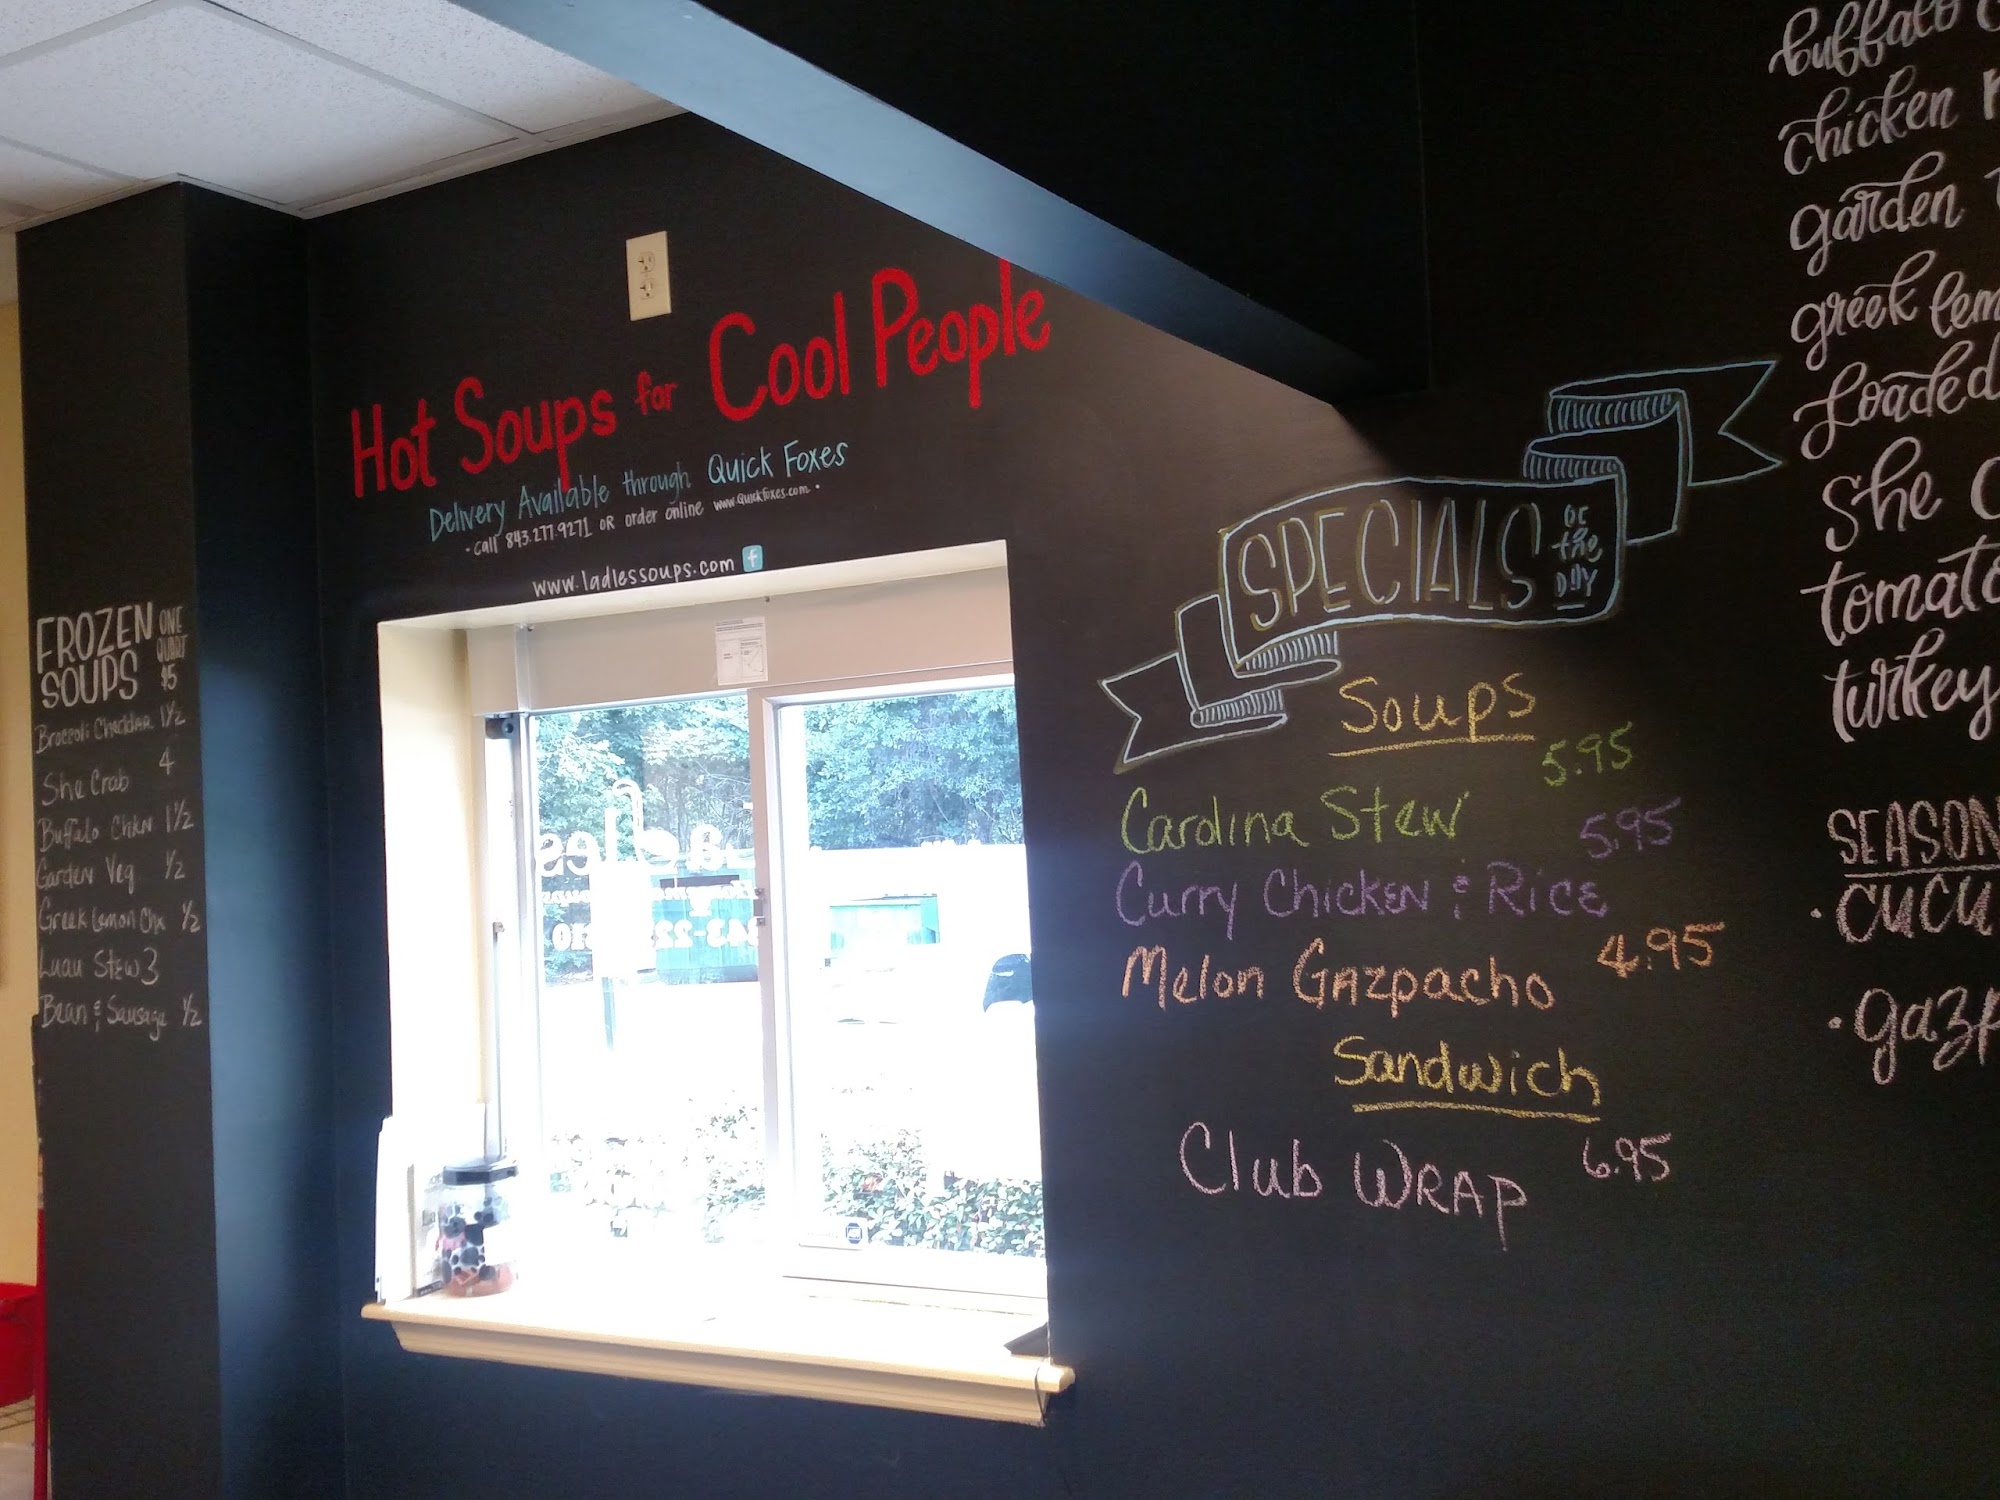 Hot Soups for Cool People
Delivery Available through Quick Foxes
• call 843.277.9271 OR order online www.Quickfoxes.com •
www.ladlessoups.com f
FROZEN SOUPS
ONE QUART $5
Broccoli Cheddar 1 1/2
She Crab 4
Buffalo Chkn 1 1/2
Garden Veg. 1/2
Greek Lemon Chx 1/2
Luau Stew 3
Bean & Sausage 1/2
SPECIALS OF the DAY
Soups
Carolina Stew 5.95
Curry Chicken & Rice 5.95
Melon Gazpacho 4.95
Sandwich
Club WRAP 6.95
buffalo
chicken
garden
greek lem
Loaded
She
tomato
turkey
SEASON
• cucu
• gazp